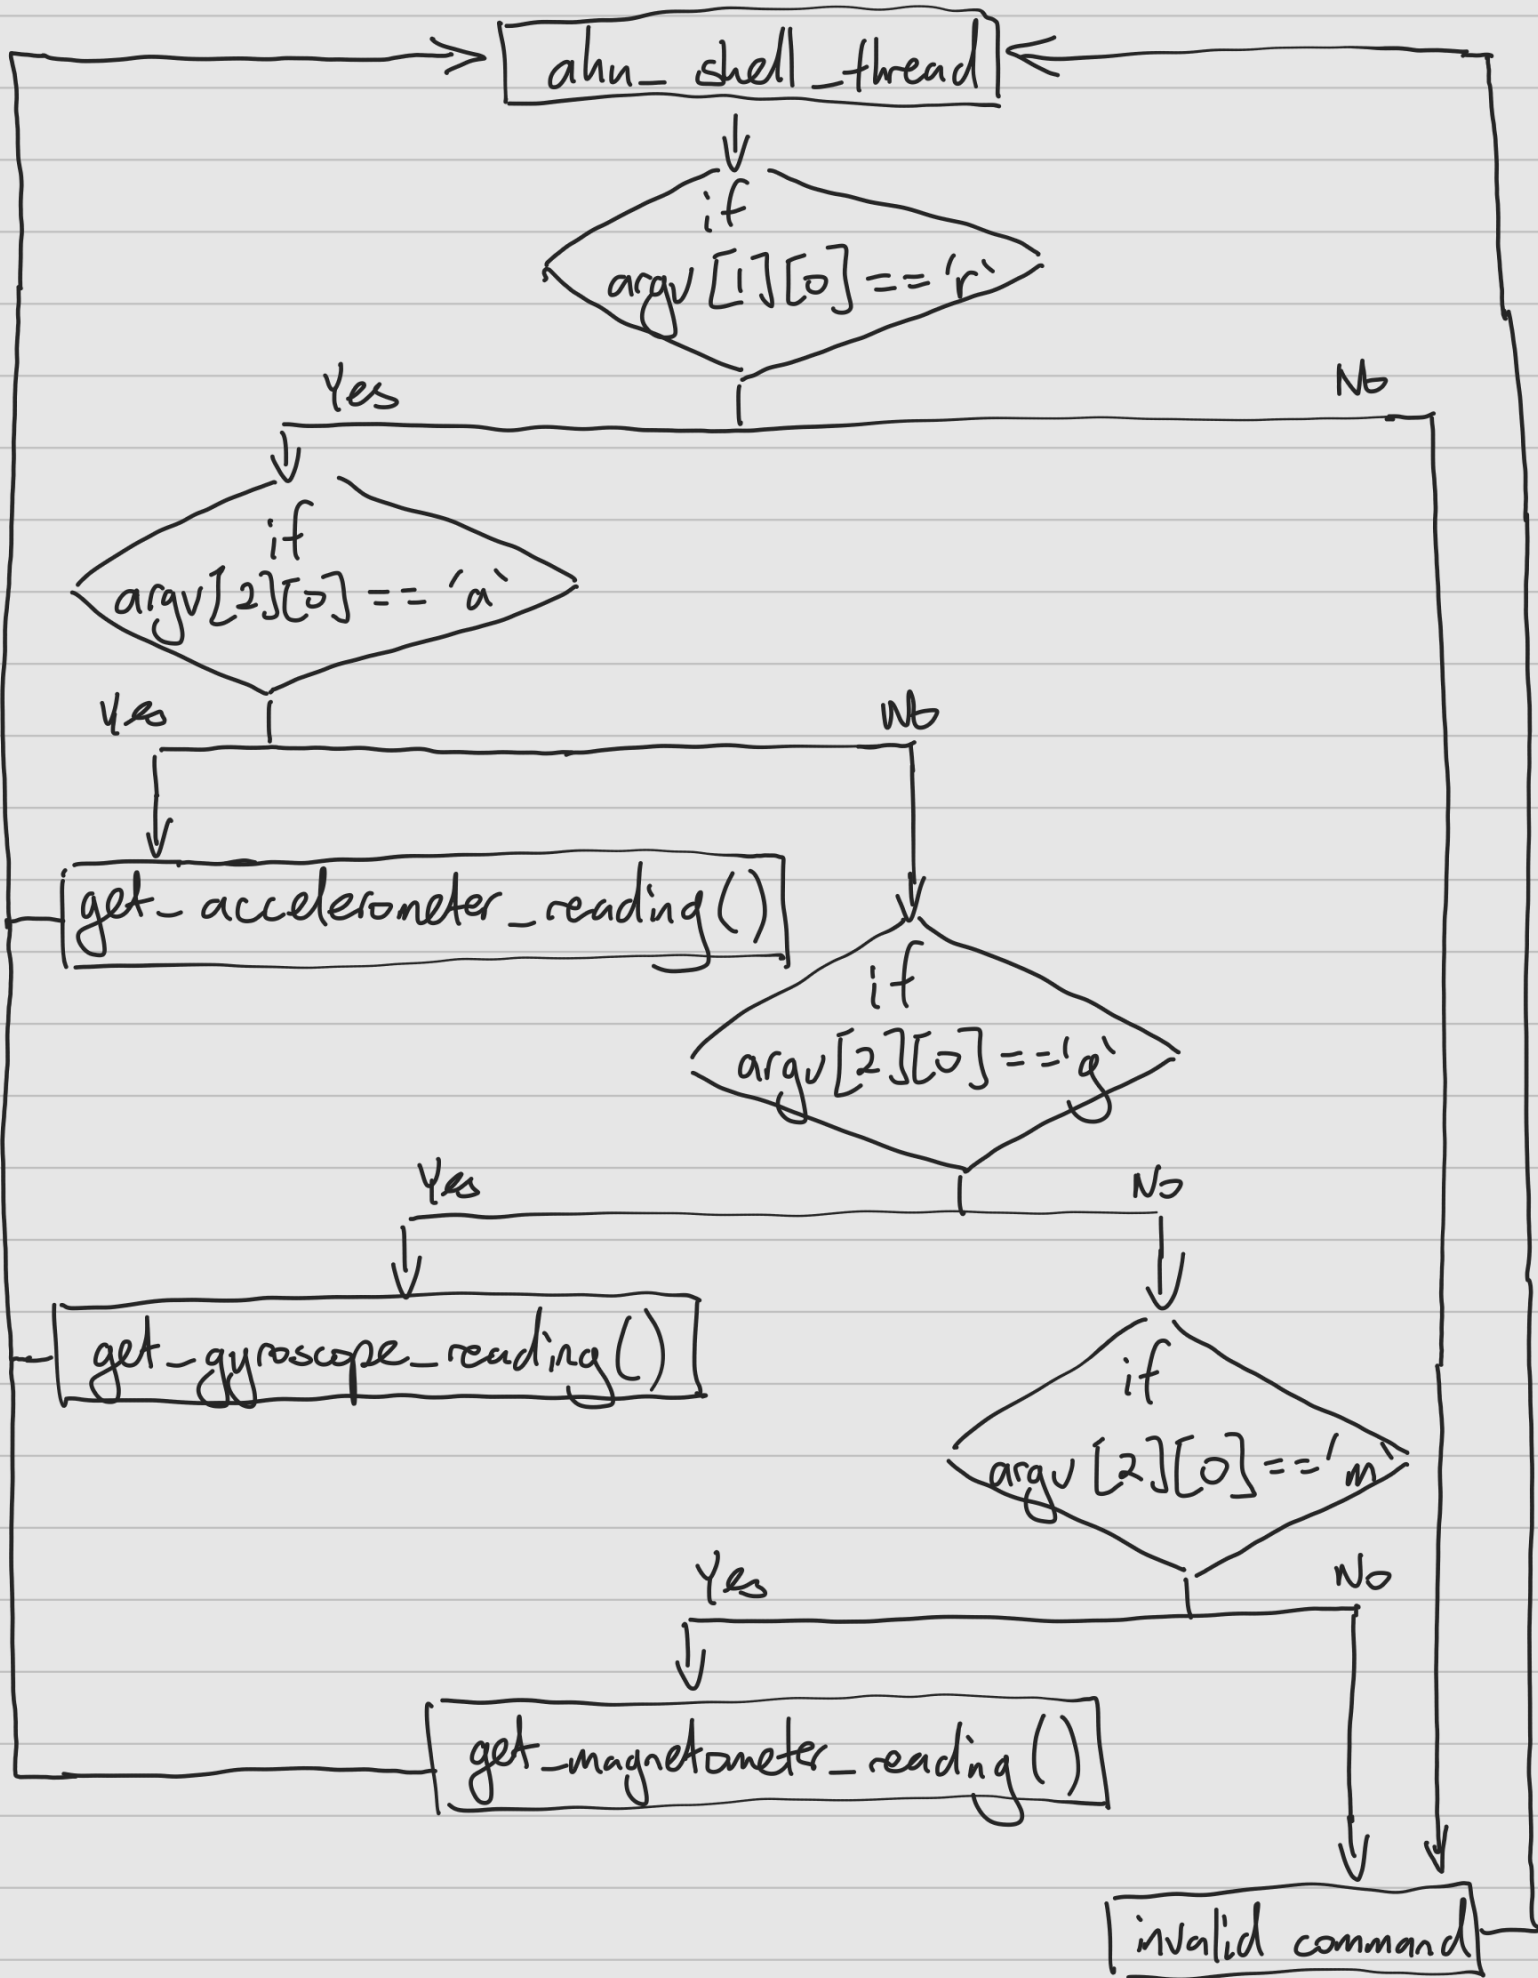 ahn_shell_thread
if
argv[1][0]=='r'
Yes
No
if
argv[2][0]=='a'
Yes
No
get_accelerometer_reading()
if
argv[2][0]=='g'
Yes
No
get_gyroscope_reading()
if
argv[2][0]=='m'
Yes
No
get_magnetometer_reading()
invalid command